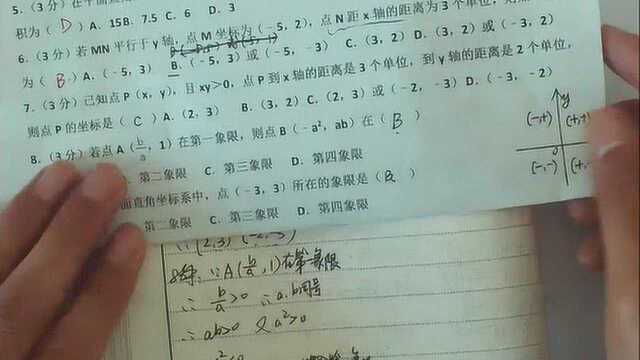 5.(3分)在平面直角
积为( D )A. 15 B. 7.5 C. 6 D. 3
6.(3分)若MN平行于y轴,点M坐标为(-5,2),点N距x轴的距离为3个单位,
为( B )A.(-5,3) B.(-5,3)或(-5,-3) C.(3,2) D.(3,2)或(-5,2)
7.(3分)已知点P(x,y),且xy>0,点P到x轴的距离是3个单位,到y轴的距离是2个单位,
则点P的坐标是( C )A.(2,3) B.(3,2) C.(2,3)或(-2,-3) D.(-3,-2)
8.(3分)若点A(b/a,1)在第一象限,则点B(-a²,ab)在( B )
第二象限 C. 第三象限 D. 第四象限
面直角坐标系中,点(-3,3)所在的象限是( B )
第二象限 C. 第三象限 D. 第四象限
y
(-,+) (+,+)
0
(-,-) (+,-)
(2,3) (-2,-3)
∵A(b/a,1)在第一象限
∴ b/a>0 ∴a,b同号
∴ab>0 又a²>0